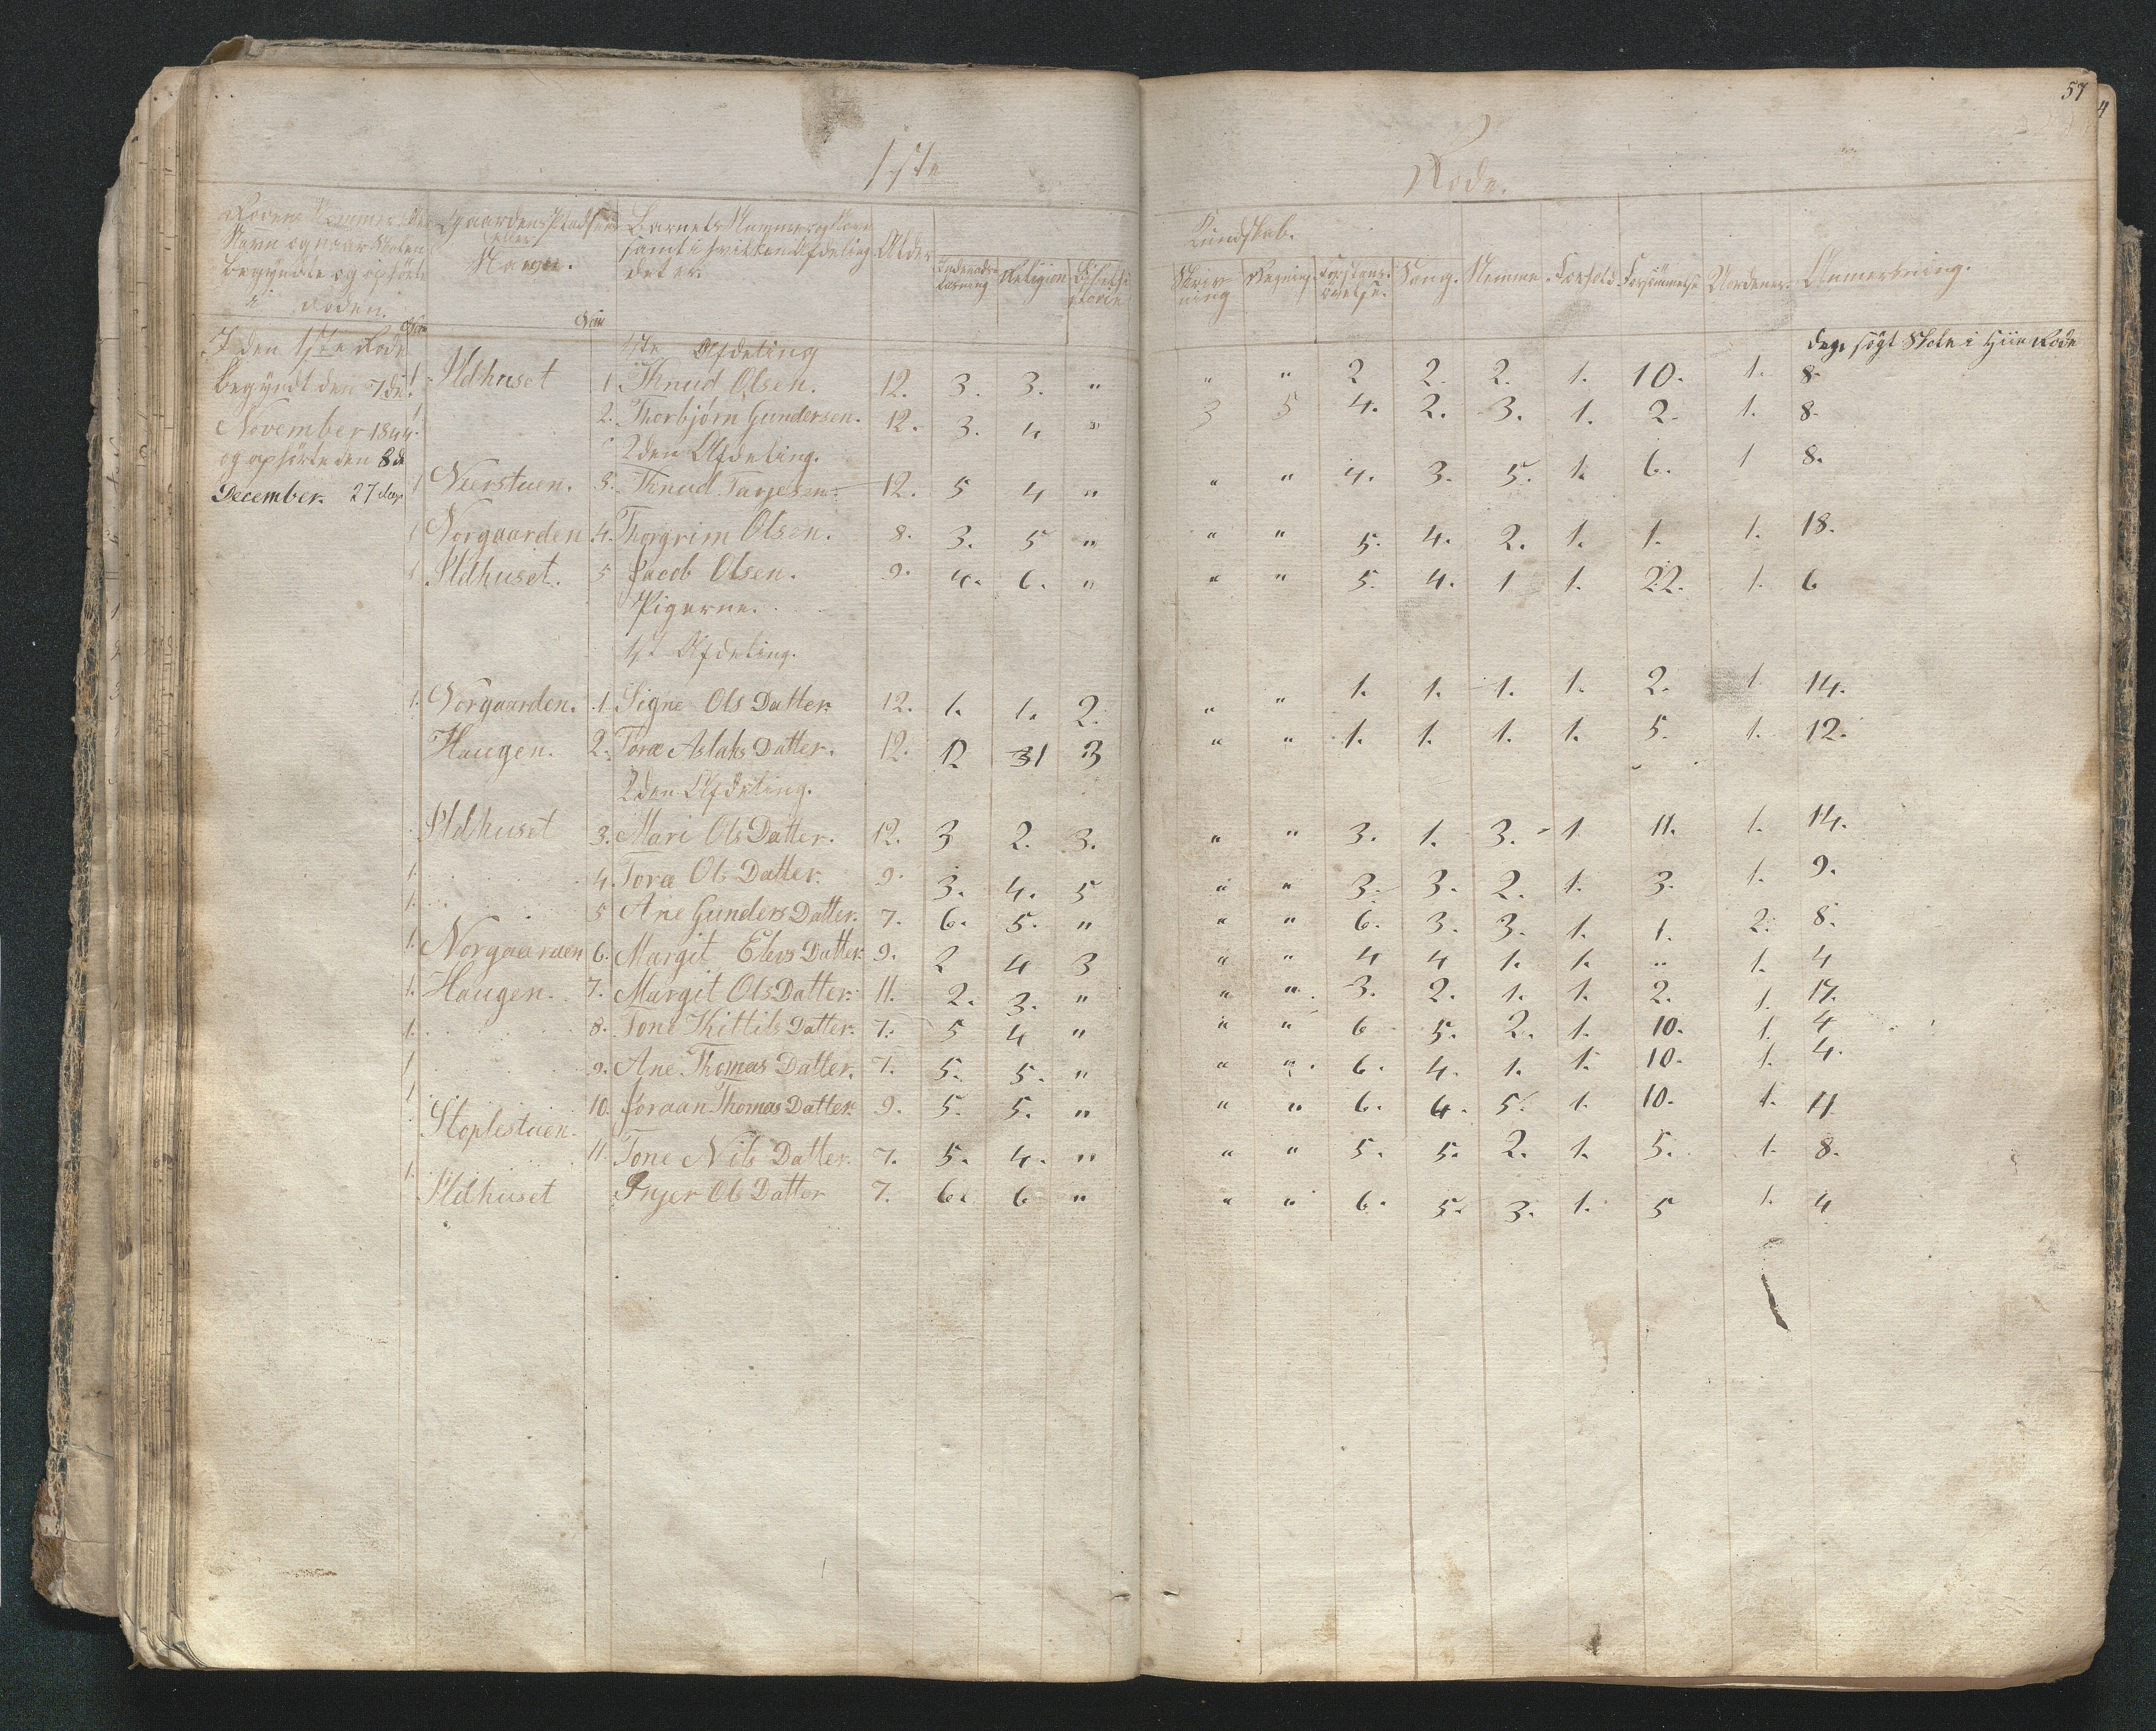 57
1ste Rode.
Rodens Nummer eller Navn og naar Skolen begyndte og ophørte i Roden.
Gaardens Pladsens eller Navn.
Barnets Nummer og Navn samt i hvilken Afdeling det er.
Alder
Indenads-læsning
Religion
Bibelhistorie
Kundskab.
Skrivning
Regning
Forstands-øvelse.
Sang.
Nemme
Forhold
Forsømmelse
Anmerkning.
I den 1ste Rode
begyndt den 7de
November 1844.
og ophørte den 8de
December. 27 dag
Dage søgt Skole i Hiin Rode
1ste Afdeling
1 Ildhuset 1. Knud Olsen. 12. 3. 3. " " " 2 2. 2. 1. 10. 1. 8.
1. 2. Thorbjörn Gundersen. 12. 3. 4 " 3 5 4. 2. 3. 1. 2. 1. 8.
2den Afdeling.
1 Neerstuen. 3. Knud Tarjesen. 12. 5 4 " " " 4. 3. 5. 1. 6. 1 8.
1 Norgaarden 4. Thorgrim Olsen. 8. 3. 5 " " " 5. 4. 2. 1. 1. 1. 18.
1 Ildhuset. 5 Jacob Olsen. 9. 4. 6. " " " 5. 4. 1 1. 22. 1. 6
Pigerne.
1ste Afdeling.
1. Norgaarden. 1. Signe Ols Datter 12. 1. 1. 2. " " 1. 1. 1. 1. 2. 1. 14.
Haugen. 2. Tora Aslaks Datter. 12. 12 31 3 " " 1. 1. 1. 1. 5. 1. 12.
2den Afdeling.
Ildhuset 3. Mari Ols Datter. 12. 3 2. 3. " " 3. 1. 3. 1 11. 1. 14.
1. 4. Tora Ols Datter. 9. 3. 4. 5 " " 3. 3. 2. 1. 3. 1. 9.
1. 5 Ane Gunders Datter. 7. 6. 5. " " " 6. 3. 3. 1. 1. 2. 8.
1. Norgaarden 6. Margit Elevs Datter 9. 2 4 3 " " 4 4 1. 1. " 1. 4
1. Haugen. 7. Margit Ols Datter. 11. 2. 3. " " " 3. 2. 1. 1. 2. 1. 17.
1. 8. Tone Kittils Datter. 7. 5 4 " " " 6 5. 2. 1. 10. 1. 4
1 9. Ane Thomas Datter. 7. 5. 5. " " " 6. 4. 1. 1. 10. 1. 4.
1 10. Joraan Thomas Datter 9. 5. 5. " " " 6. 4. 5. 1. 10. 1. 4
Stoplestuen. 11. Tone Nils Datter. 7. 5. 4. " " " 5. 5. 2. 1. 5. 1. 8.
1. Ildhuset Inger Ols Datter 7. 6. 6 " " " 6. 5. 3. 1. 5 1. 4